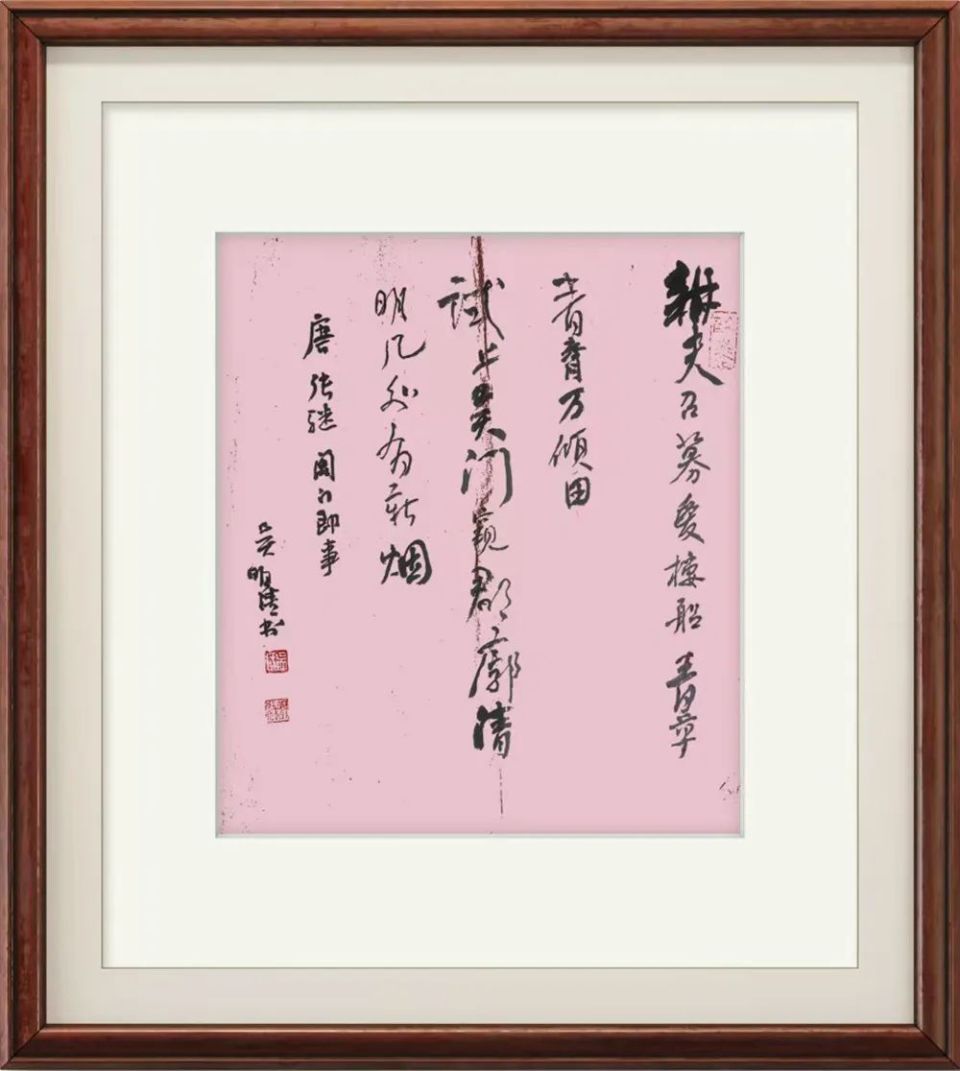 耕夫召募爱楼船春草
青青万倾田
试上吴门窥郡郭清
明几处有新烟
唐张继阊门即事
吴明书